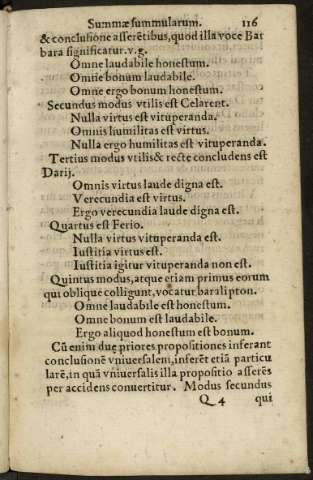 Summæ summularum. 116
& conclusione asserẽtibus, quod illa voce Bar
bara significatur. v. g.
Omne laudabile honestum.
Omne bonum laudabile.
Omne ergo bonum honestum.
Secundus modus vtilis est Celarent.
Nulla virtus est vituperanda.
Omnis humilitas est virtus.
Nulla ergo humilitas est vituperanda.
Tertius modus vtilis & recte concludens est
Darij.
Omnis virtus laude digna est.
Verecundia est virtus.
Ergo verecundia laude digna est.
Quartus est Ferio.
Nulla virtus vituperanda est.
Iustitia virtus est.
Iustitia igitur vituperanda non est.
Quintus modus, atque etiam primus eorum
qui oblique colligunt, vocatur baralipton.
Omne laudabile est honestum.
Omne bonum est laudabile.
Ergo aliquod honestum est bonum.
Cũ enim duę priores propositiones inferant
conclusionẽ vniuersalem, inferẽt etiã particu
larẽ, in quã vniuersalis illa propositio asserẽs
per accidens conuertitur. Modus secundus
Q 4 qui